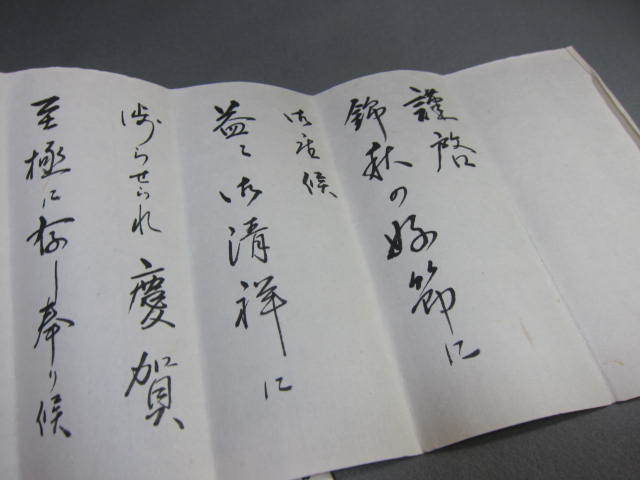 謹啓
錦秋の好節に
御座候
益々御清祥に
渉らせられ慶賀
至極に存し奉り候